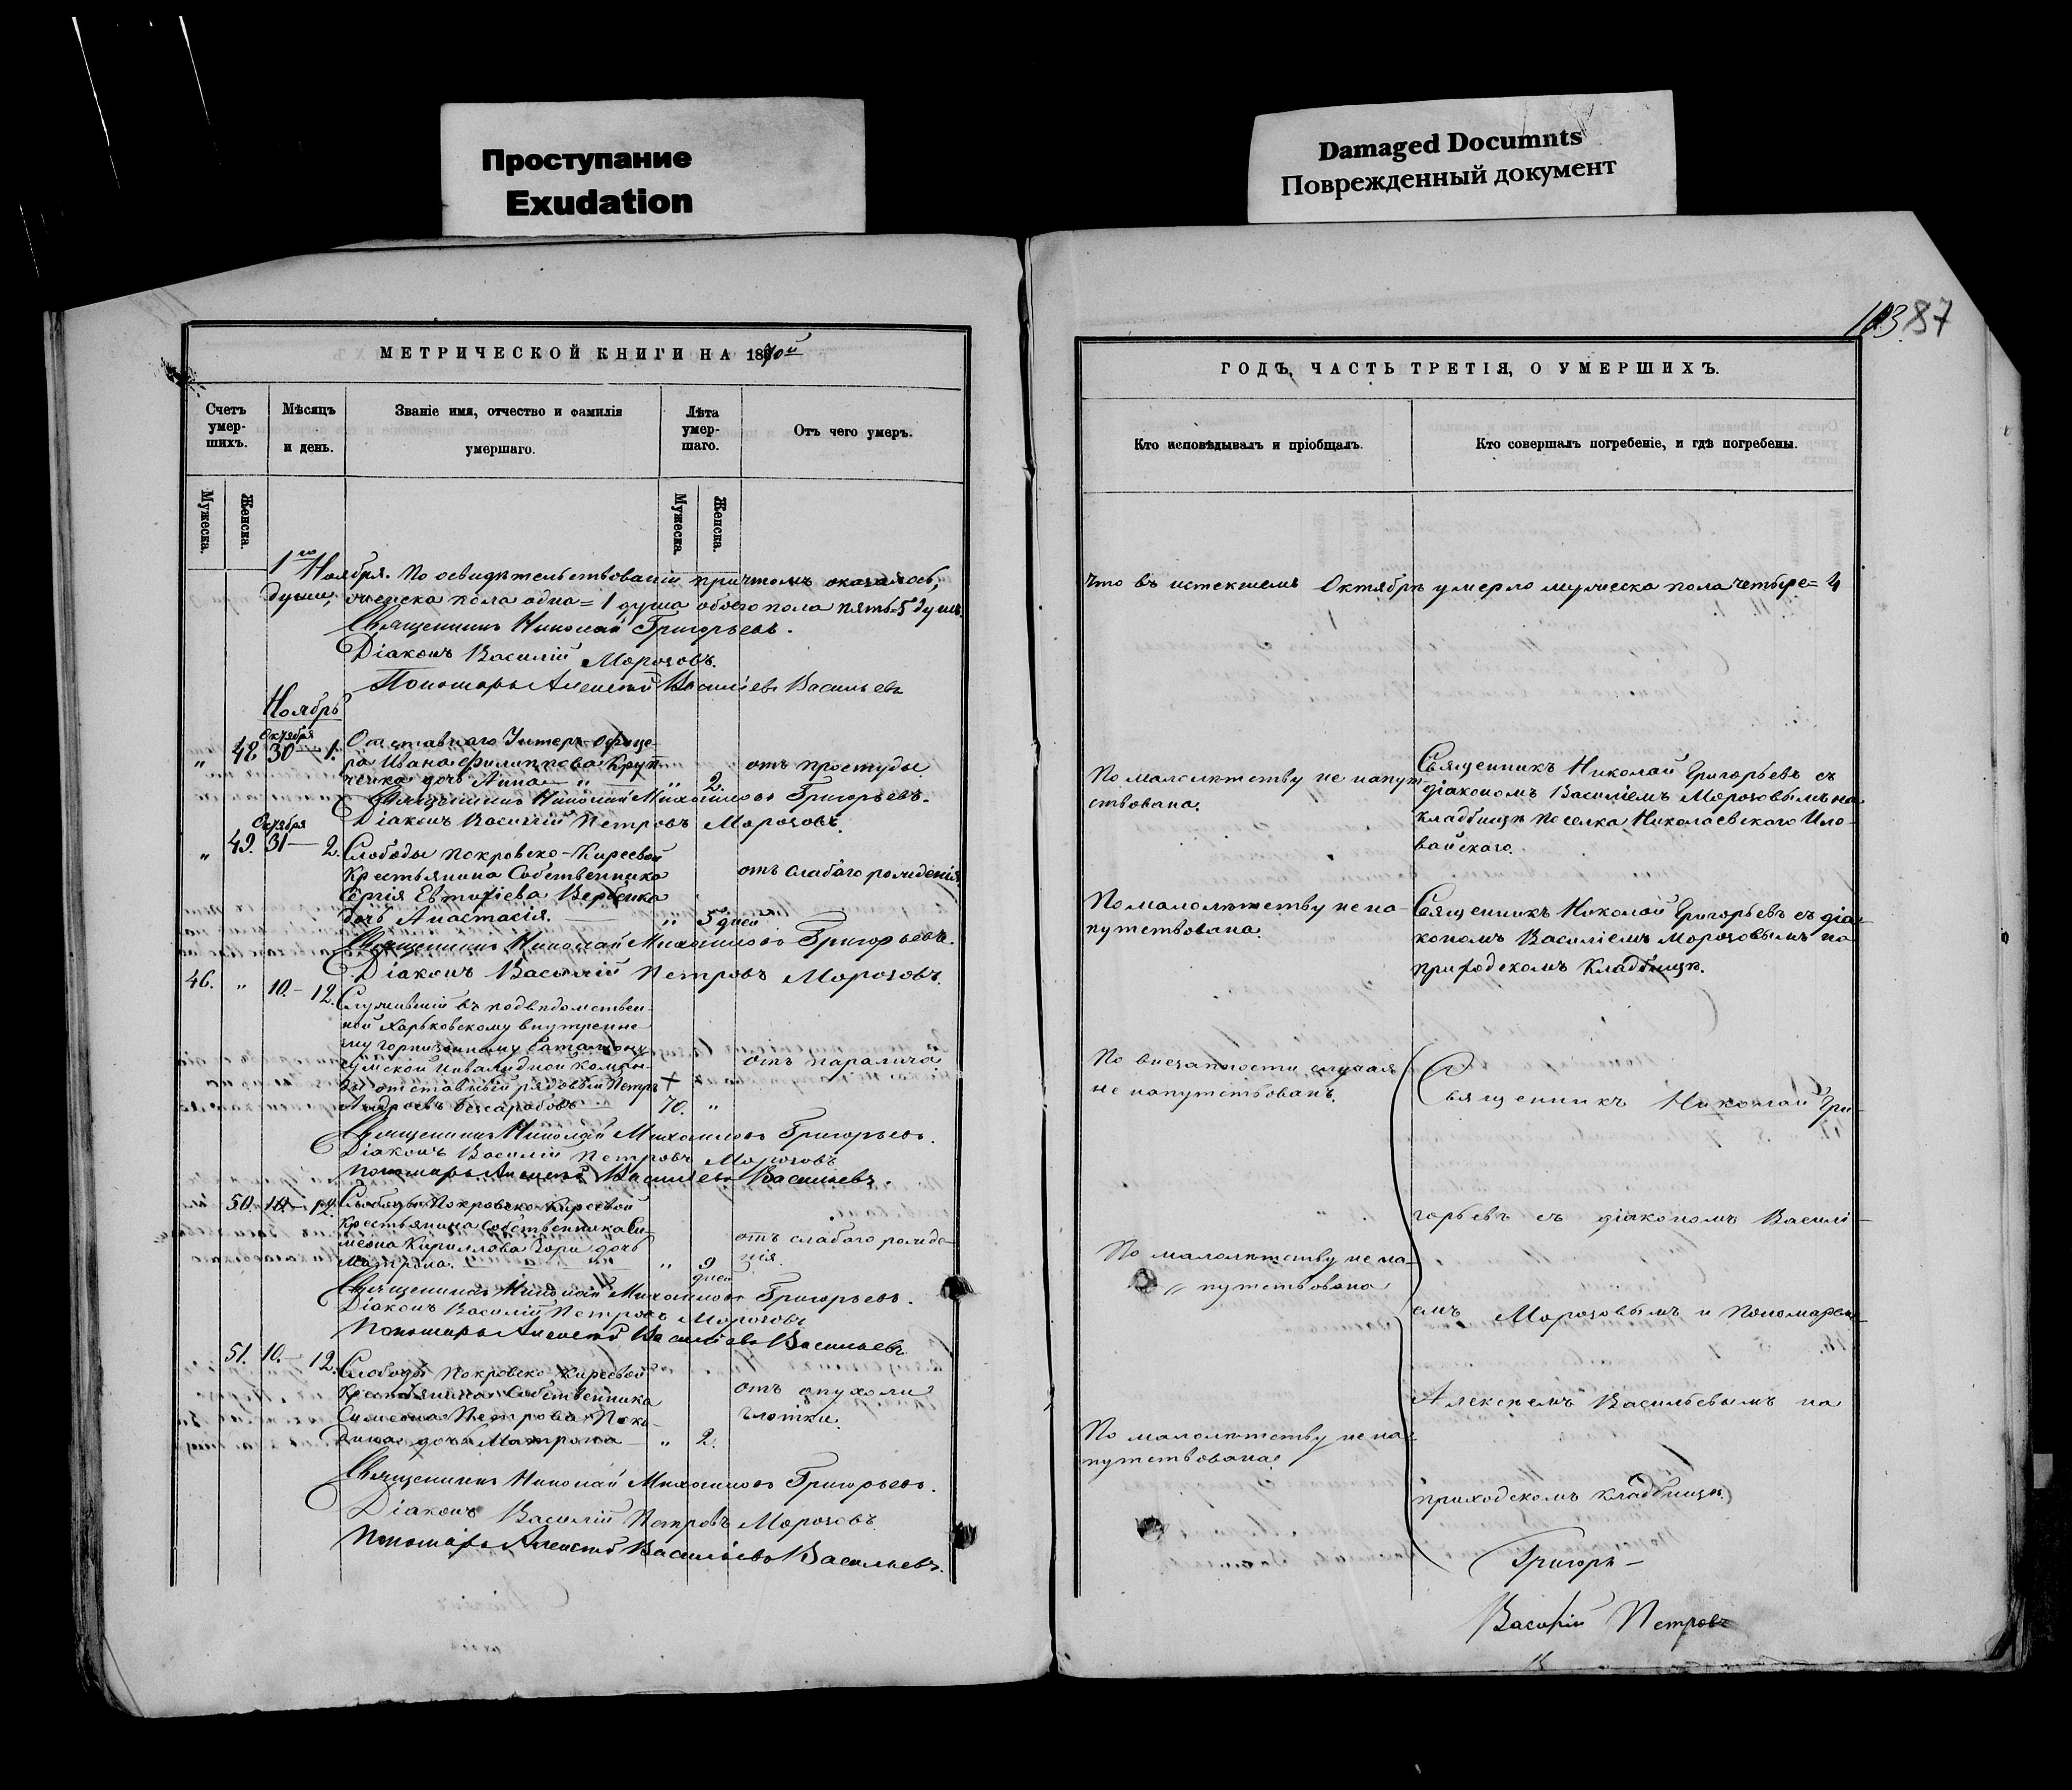 Проступание
Exudation
Damaged Documnts
Поврежденный документ
103. 87
МЕТРИЧЕСКОЙ КНИГИ НА 1870й
Счетъ умер-
шихъ.
Мѣсяцъ
и день.
Званіе имя, отчество и фамилія
умершаго.
Лѣта
умер-
шаго.
Отъ чего умеръ.
Мужеска.
Женска.
Мужеска
Женска.
1го Ноября. По освидѣтельствованіи причтомъ оказалось,
души, женска пола одна = 1 душа обоего пола пять = 5 душъ.
Священникъ Николай Григорьевъ.
Діаконъ Василій Морозовъ.
Пономарь Алексѣй Васильевъ Васильевъ
Ноябрь
Октября
" 48 30 — 1. Отставнаго Унтеръ-офице-
ра Ивана Филиппова
дочь Анна — " 2. отъ простуды.
Священникъ Николай Михайловъ Григорьевъ.
Діаконъ Василій Петровъ Морозовъ.
Октября
" 49. 31 — 2. Слободы Покровско-Киреевой
Крестьянина Собственника отъ слабаго рожденія.
Сергія Евтихіева Вербенка
дочь Анастасія. — " 5 дней
Священникъ Николай Михайловъ Григорьевъ.
Діаконъ Василій Петровъ Морозовъ.
46. " 10. — 12. Служившій въ подвѣдомствен-
ной Харьковскому внутренне-
му горнизонному баталіону
сумской инвалидной коман-
ды отставный рядовый Петръ + отъ паралича
Андреевъ Бесарабовъ 70. "
Священникъ Николай Михайловъ Григорьевъ.
Діаконъ Василій Петровъ Морозовъ
Пономарь Алексѣй Васильевъ Васильевъ.
50. 10 — 12. Слободы Покровско-Киреевой
Крестьянина Собственника Си-
меона Кириллова дочь отъ слабаго рожде-
Матрона. — " 9 дней нія.
Священникъ Николай Михайловъ Григорьевъ.
Діаконъ Василій Петровъ Морозовъ
Пономарь Алексѣй Васильевъ Васильевъ
51. 10. — 12. Слободы Покровско-Киреевой
Крестьянина Собственника отъ опухоли
Симеона Петрова глотки.
дочь Матрона — " 2.
Священникъ Николай Михайловъ Григорьевъ.
Діаконъ Василій Петровъ Морозовъ.
Пономарь Алексѣй Васильевъ Васильевъ.
ГОДЪ, ЧАСТЬ ТРЕТІЯ, О УМЕРШИХЪ.
Кто исповѣдывалъ и пріобщалъ.
Кто совершалъ погребеніе, и гдѣ погребены.
что въ истекшемъ Октябрѣ умерло мужеска пола четыре = 4
По малолѣтству не напут-
ствована.
Священникъ Николай Григорьевъ съ
діакономъ Василіемъ Морозовымъ на
кладбищѣ поселка Николаевскаго Ило-
вайскаго.
По малолѣтству не на-
путствована.
Священникъ Николай Григорьевъ съ діа-
кономъ Василіемъ Морозовымъ на
приходскомъ кладбищѣ.
По внезапности случая
не напутствованъ.
Священникъ Николай Гри-
горьевъ съ діакономъ Василі-
По малолѣтству не на-
путствована
емъ Морозовымъ и пономаремъ
Алексѣемъ Васильевымъ на
По малолѣтству не на-
путствована.
приходскомъ кладбищѣ.
Григорь-
Василій Петровъ